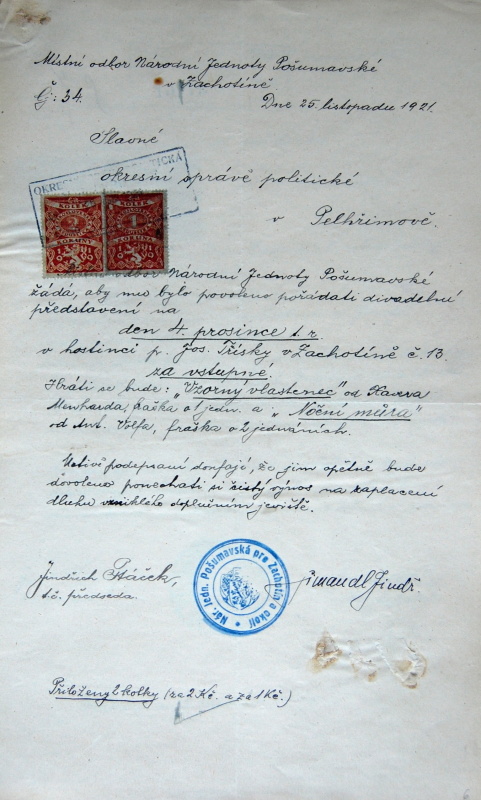 Místní odbor Národní Jednoty Pošumavské
v Zachotíně
Čj: 34.
Dne 25. listopadu 1921.
Slavné
okresní správě politické
v Pelhřimově.
OKRESNÍ
KOLEK KOLEK
2 1
KORUNY KORUNA
1919 1919
odbor Národní Jednoty Pošumavské
žádá, aby mu bylo povoleno pořádati divadelní
představení na
den 4. prosince t.r.
v hostinci p. Jos. Třísky v Zachotíně č. 13.
za vstupné.
Hráti se bude: „Vzorný vlastenec" od
fraška o 1 jedn. a „Noční můra"
od Ant. Volfa, fraška o 2 jednáních.
Uctivě podepsaní doufají, že jim opětně bude
dovoleno ponechati si čistý výnos na zaplacení
dluhu vzniklého doplněním jeviště.
Jindřich Ptáček,
t.č. předseda.
Nár. Jedn. Pošumavská pro Zachotín a okolí
Šimandl Jindř.
Přiloženy 2 kolky (za 2 Kč. a za 1 Kč.)